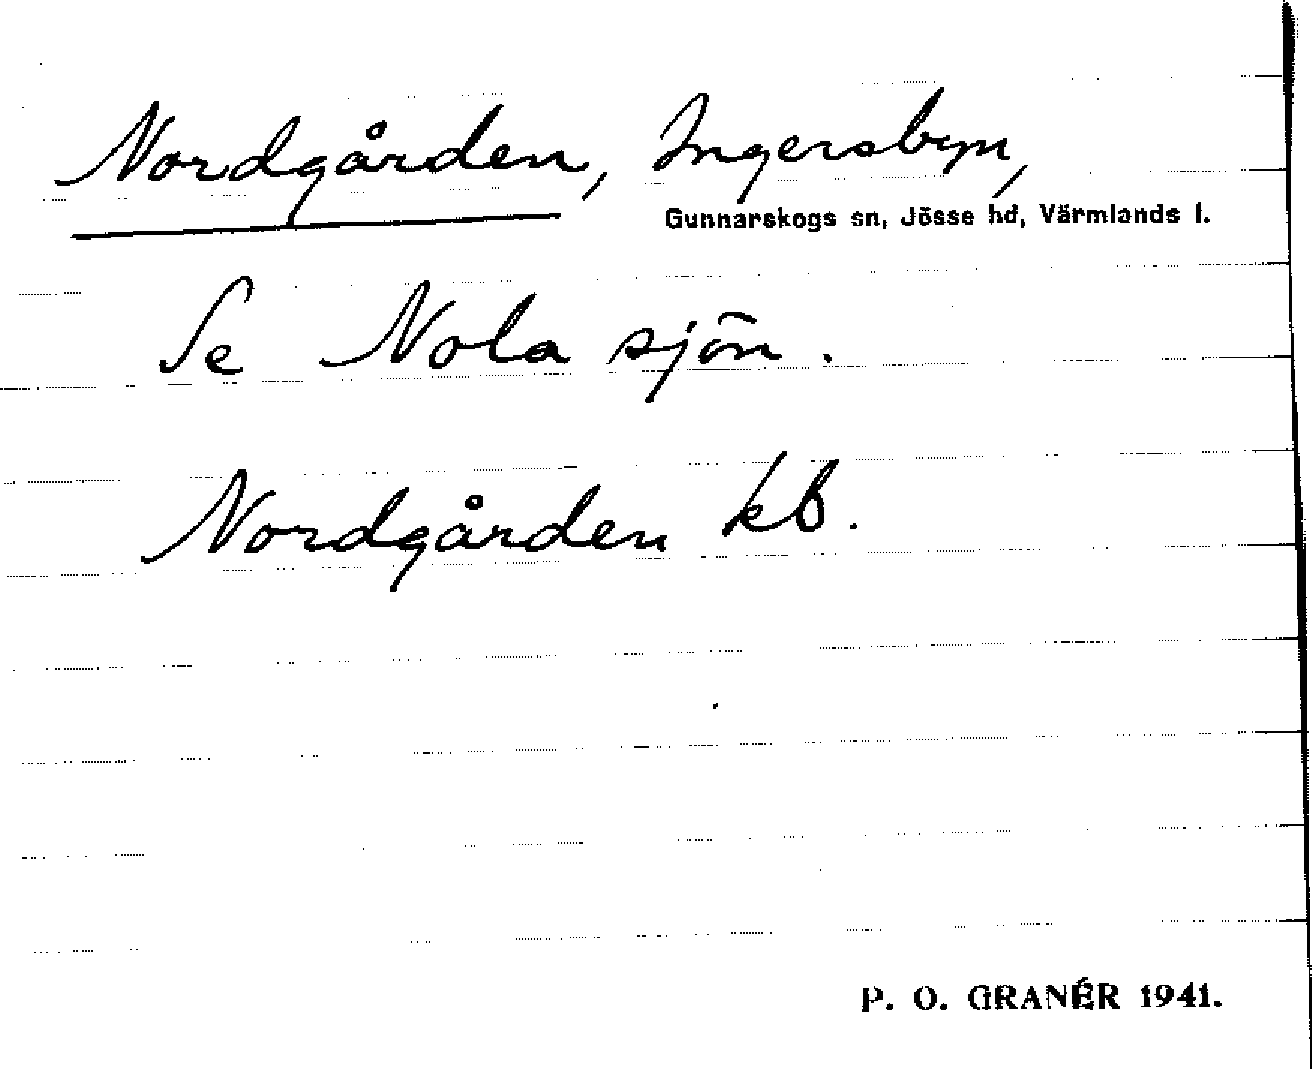 Nordgården, Ingersbyn,
Gunnarskogs sn, Jösse hd, Värmlands l.
Se Nola sjön.
Nordgården kb.
P. O. GRANÉR 1941.